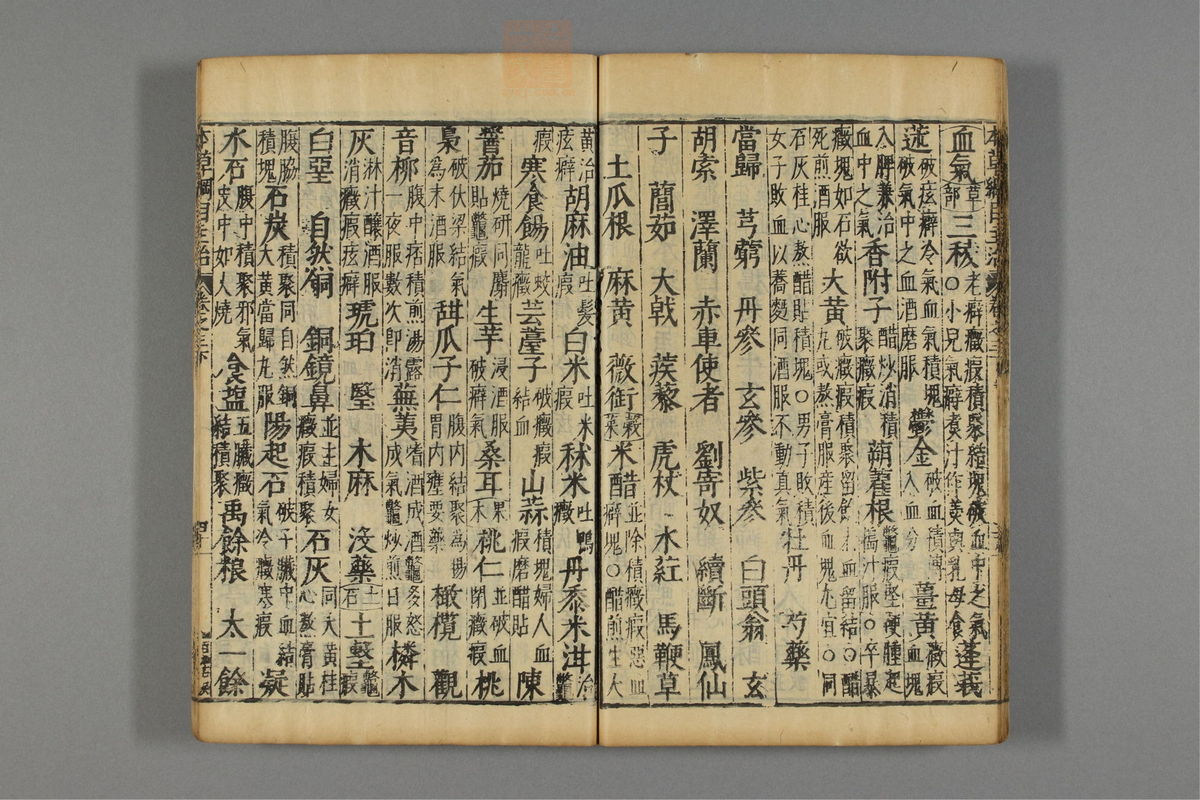 血氣 草部 三稜 老癖癥瘕積聚結塊破血中之氣 〇小兒氣癖煮汁作羹與乳母食 蓬莪
荗 破痃癖冷氣血氣積塊破氣中之血酒磨服 鬱金 破血積 入血 薑黃 癥瘕血塊
入脾兼治血中之氣 香附子 醋炒消積聚癥瘕 蒴藋根 鱉瘕堅硬腫起擣汁服〇卒暴
癥塊如石欲死煎酒服 大黃 破癥瘕積聚留飲 血留結〇醋丸或熬膏服產後血塊尤宜〇同
石灰桂心熬醋貼積塊〇男子敗積女子敗血以蕎麪同酒服不動真氣 牡丹 芍藥
當歸 芎藭 丹參 玄參 紫參 白頭翁 玄
胡索 澤蘭 赤車使者 劉寄奴 續斷 鳳仙
子 䕡茹 大戟 蒺藜 虎杖 水紅 馬鞭草
土瓜根 麻黃 薇銜 穀菜 米醋 並除積癥瘕惡血癖塊〇醋煎生大
黃治痃癖 胡麻油 吐髮瘕 白米 吐米瘕 秫米 吐鴨癥 丹黍米泔 治鱉
瘕 寒食餳 吐蛟龍癥 芸薹子 破癥瘕結血 山蒜 積塊婦人血瘕磨醋貼 陳
醬茄 燒研同麝貼鱉瘕 生芋 浸酒服破癖氣 桑耳 果木 桃仁 並破血閉癥瘕 桃
梟 破伏梁結氣為末酒服 甜瓜子仁 腹內結聚為腸胃內壅要藥 橄欖 觀
音柳 腹中痞積煎湯露一夜服數次即消 蕪荑 嗜酒成酒鱉多怒成氣鱉炒煎日服 橉木
灰 淋汁釀酒服消癥瘕痃癖 琥珀 瑿 木麻 淩藥 土石 土墼 鱉瘕
白堊 自然銅 銅鏡鼻 並主婦女癥瘕積聚 石灰 同大黃桂心熬膏貼
腹脇積塊 石炭 積聚同自然銅大黃當歸丸服 陽起石 破子臟中血結氣冷癥寒瘕 凝
水石 腹中積聚邪氣皮中如火燒 食鹽 五臟癥結積聚 禹餘粮 太一餘